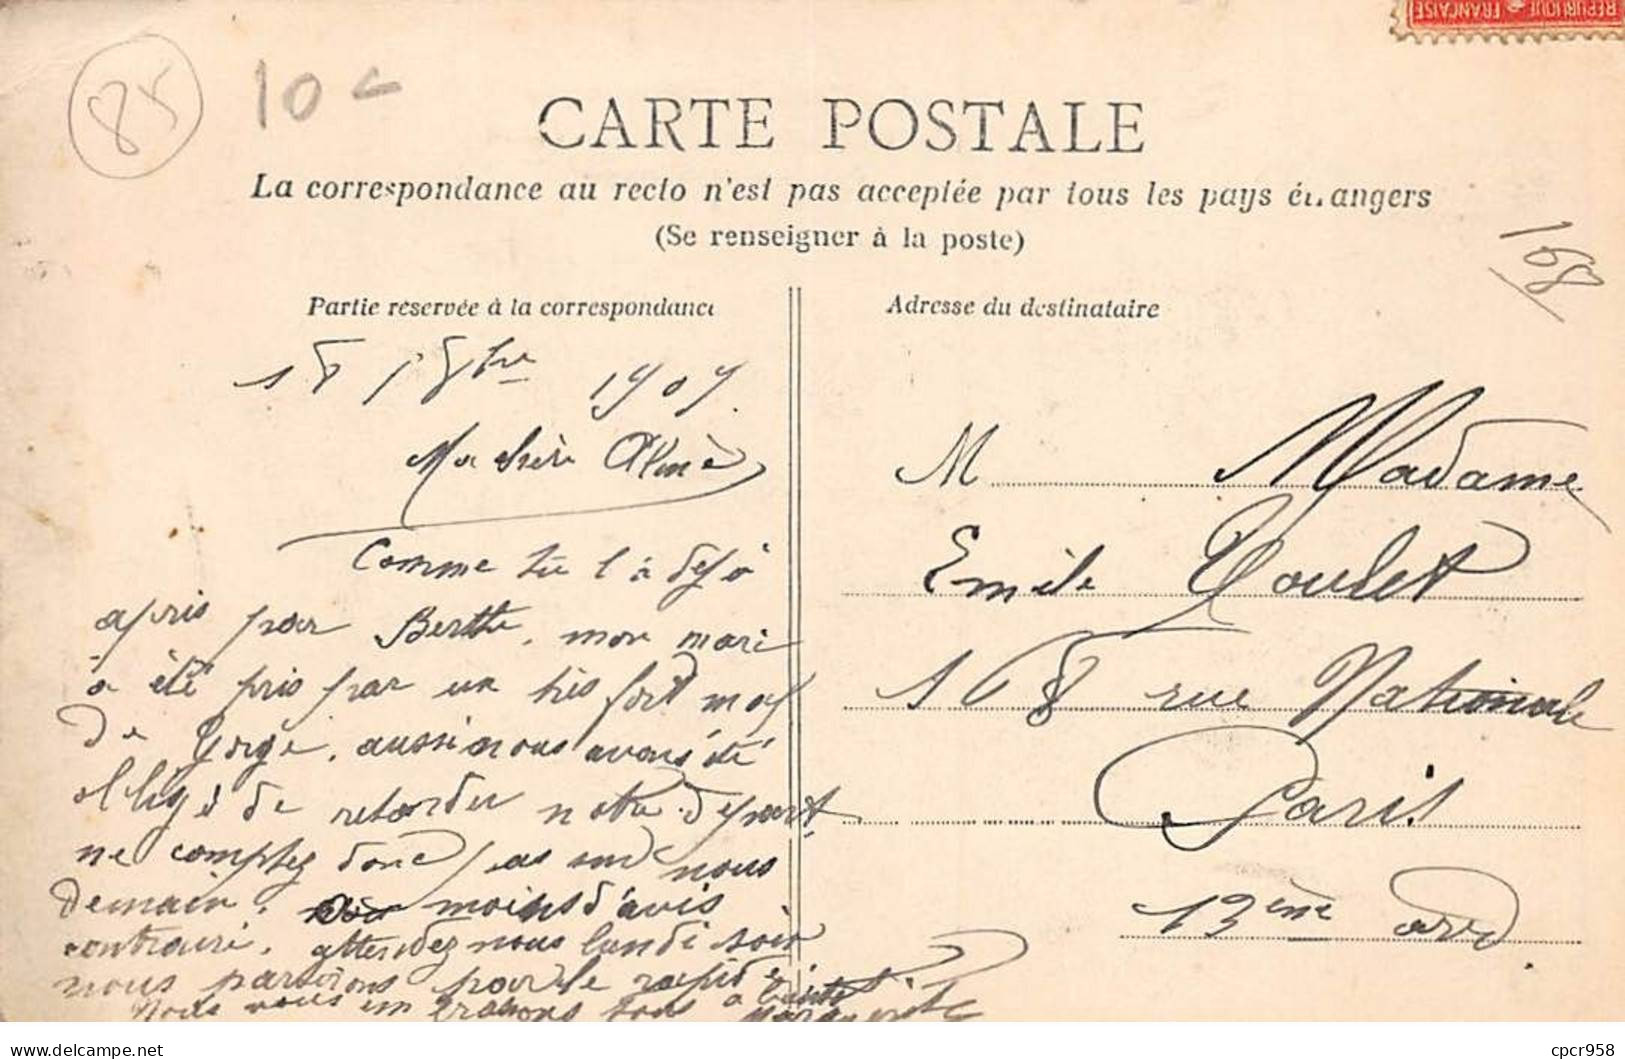 REPUBLIQUE FRANÇAISE
85
10 c
CARTE POSTALE
La correspondance au recto n'est pas acceptée par tous les pays étrangers
(Se renseigner à la poste)
168
Partie réservée à la correspondance
Adresse du destinataire
18 / 8bre 1907.
Ma chère Aline
Comme tu l'a déjà
apris par Berthe, mon mari
a été pris par un très fort mal
de gorge, aussi nous avons été
obligé de retarder notre départ
ne comptez donc pas sur nous
demain, moins d'avis
contraire, attendez nous lundi soir
nous partirons par le rapide
Nous vous embrassons tous
Marguerite
M Madame
Emile Goulet
168 rue Nationale
Paris
13ème ard.
delcampe.net
cpcr958